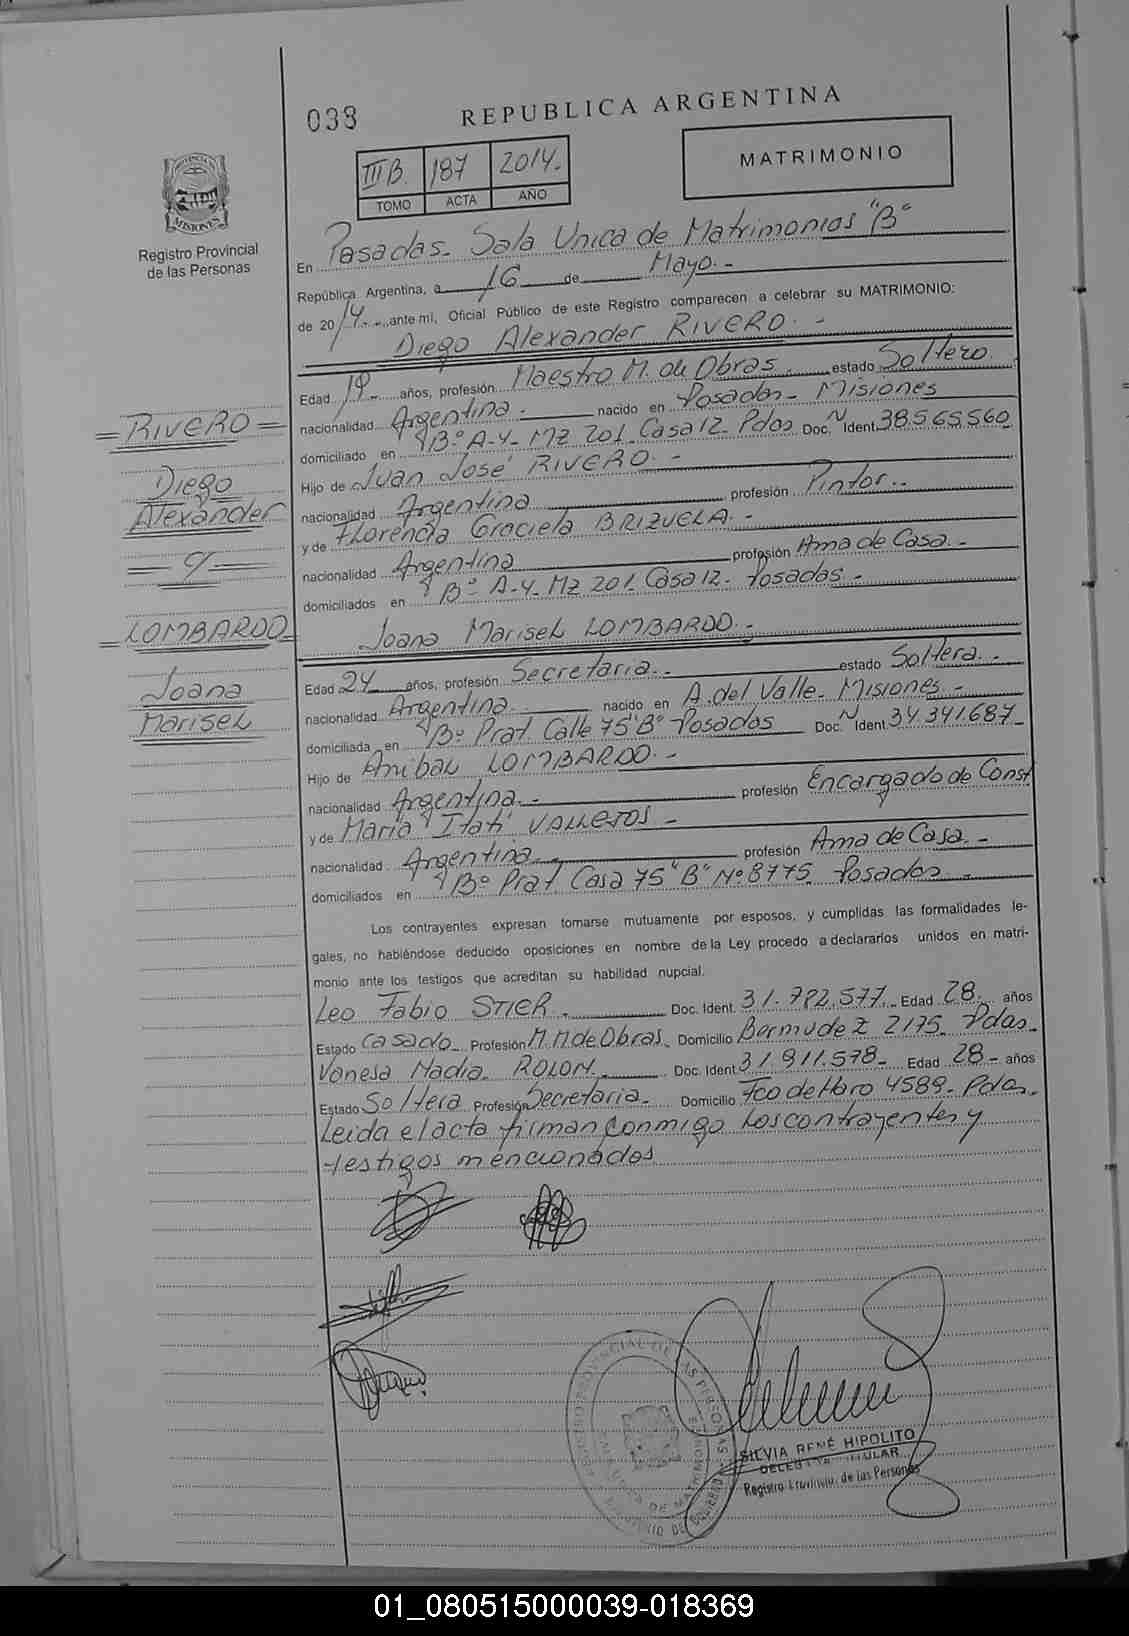 038
REPUBLICA ARGENTINA
III B. 187 2014.-
TOMO ACTA AÑO
MATRIMONIO
PROVINCIA DE
MISIONES
Registro Provincial
de las Personas
En Posadas- Sala Unica de Matrimonios "B"
República Argentina, a 16 de Mayo.-
de 2014.- ante mí, Oficial Público de este Registro comparecen a celebrar su MATRIMONIO:
Diego Alexander RIVERO.-
Edad 19 años, profesión Maestro M. de Obras estado Soltero
nacionalidad Argentina.- nacido en Posadas- Misiones
domiciliado en Bº A-4- MZ 201- Casa 12 Pdas Doc. N Ident. 38.565.560
Hijo de Juan José RIVERO.-
nacionalidad Argentina profesión Pintor.-
y de Florencia Graciela BRIZUELA.-
nacionalidad Argentina profesión Ama de Casa.-
domiciliados en Bº A-4- MZ 201- Casa 12- Posadas.-
Joana Marisel LOMBARDO.-
Edad 24 años, profesión Secretaria.- estado Soltera.-
nacionalidad Argentina.- nacido en A. del Valle- Misiones.-
domiciliada en Bº Prat. Calle 75 "B" Posadas Doc. N Ident. 34.341.687-
Hijo de Anibal LOMBARDO.-
nacionalidad Argentina.- profesión Encargado de Const
y de Maria Itati VALLEJOS.-
nacionalidad Argentina.- profesión Ama de Casa.-
domiciliados en Bº Prat Casa 75 "B" Nº 8775 Posadas.-
Los contrayentes expresan tomarse mutuamente por esposos, y cumplidas las formalidades le-
gales, no habiéndose deducido oposiciones en nombre de la Ley procedo a declararlos unidos en matri-
monio ante los testigos que acreditan su habilidad nupcial.
Leo Fabio STIER.- Doc. Ident. 31.782.577.- Edad 28.- años
Estado Casado- Profesión M.M de Obras. Domicilio Bermudez 2175- Pdas.
Vanesa Nadia ROLON.- Doc. Ident. 31.911.578- Edad 28- años
Estado Soltera Profesión Secretaria.- Domicilio Fco de Haro 4589- Pdas.
Leida el acta firman conmigo los contrayentes y
testigos mencionados
= RIVERO =
Diego
Alexander
= y =
= LOMBARDO =
Joana
Marisel
REGISTRO PROVINCIAL DE LAS PERSONAS
MINISTERIO DE GOBIERNO
SILVIA RENÉ HIPOLITO
DELEGADA TITULAR
Registro Provincial de las Personas
01_080515000039-018369